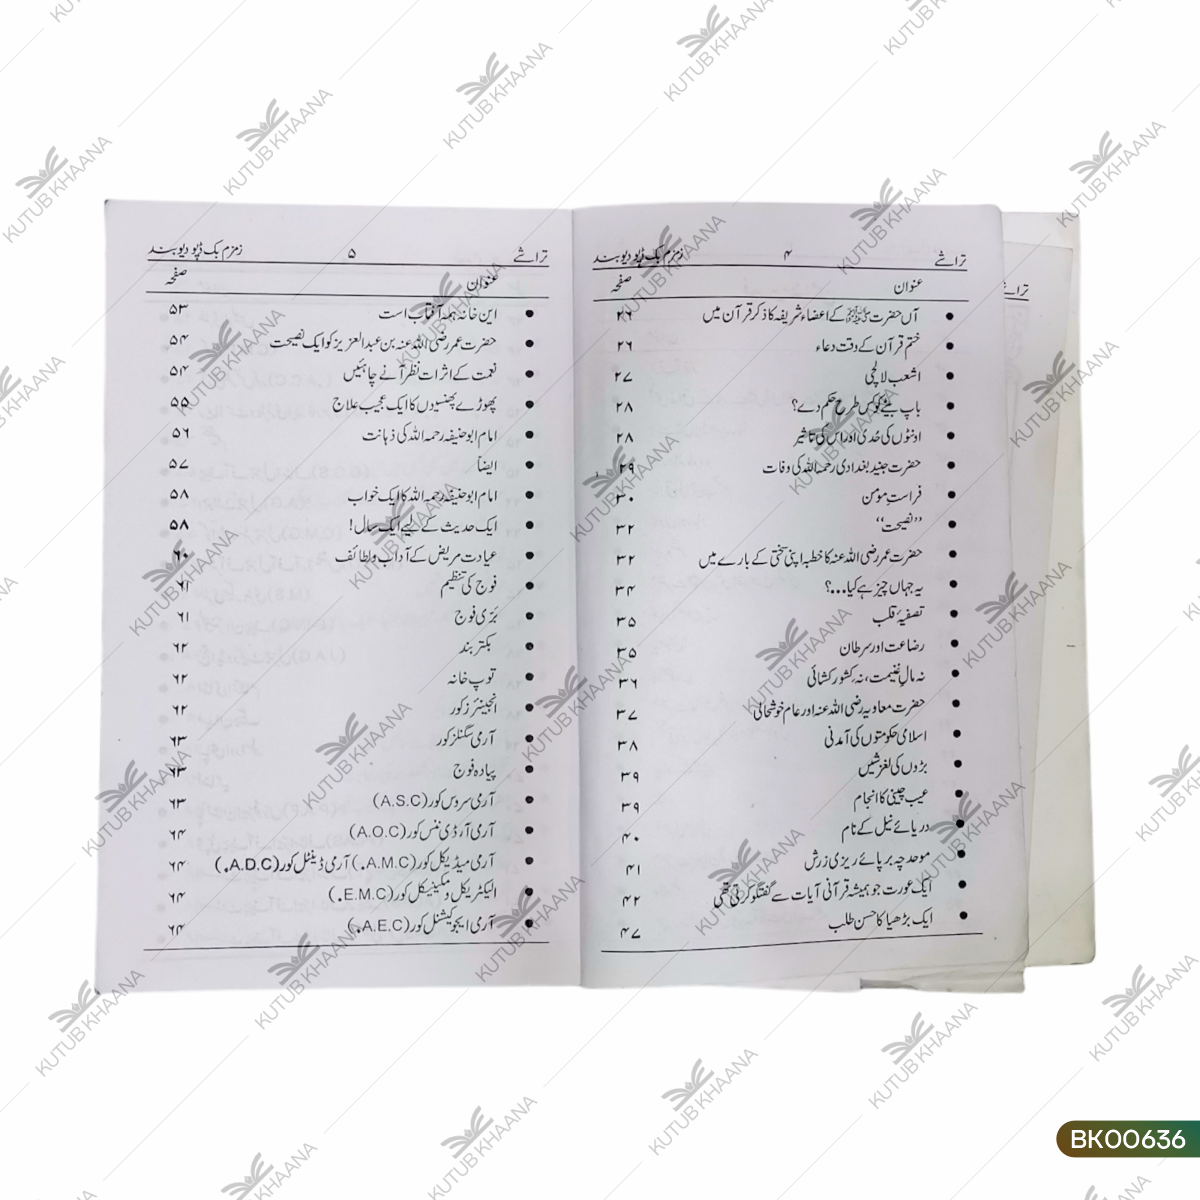 تراشے ۴ زمزم بک ڈپو دیوبند
عنوان صفحہ
آں حضرت ﷺ کے اعضاء شریفہ کا ذکر قرآن میں ۲۶
ختم قرآن کے وقت دعاء ۲۶
اشعب لالچی ۲۷
باپ بیٹے کو کس طرح حکم دے؟ ۲۸
اونٹوں کی حُدی اور اس کی تاثیر ۲۸
حضرت جنید بغدادی رحمہ اللہ کی وفات ۲۹
فراستِ مؤمن ۳۰
’’نصیحت‘‘ ۳۲
حضرت عمر رضی اللہ عنہ کا خطبہ اپنی سختی کے بارے میں ۳۲
یہ جہاں چیز ہے کیا...؟ ۳۴
تصفیۂ قلب ۳۵
رضاعت اور سرطان ۳۵
نہ مالِ غنیمت، نہ کشور کشائی ۳۶
حضرت معاویہ رضی اللہ عنہ اور عام خوشحالی ۳۷
اسلامی حکومتوں کی آمدنی ۳۸
بڑوں کی لغزشیں ۳۹
عیب چینی کا انجام ۳۹
دریائے نیل کے نام ۴۰
موحد چہ بر پائے ریزی زرش ۴۱
ایک عورت جو ہمیشہ قرآنی آیات سے گفتگو کرتی تھی ۴۲
ایک بڑھیا کا حسن طلب ۴۷
تراشے ۵ زمزم بک ڈپو دیوبند
عنوان صفحہ
این خانہ ہمہ آفتاب است ۵۳
حضرت عمر رضی اللہ عنہ بن عبد العزیز کو ایک نصیحت ۵۴
نعمت کے اثرات نظر آنے چاہئیں ۵۴
پھوڑے پھنسیوں کا ایک عجیب علاج ۵۵
امام ابو حنیفہ رحمہ اللہ کی ذہانت ۵۶
ایضاً ۵۷
امام ابو حنیفہ رحمہ اللہ کا ایک خواب ۵۸
ایک حدیث کے لیے ایک سال! ۵۸
عیادت مریض کے آداب و لطائف ۶۰
فوج کی تنظیم ۶۱
بَرّی فوج ۶۱
بکتر بند ۶۲
توپ خانہ ۶۲
انجینئرز کور ۶۲
آرمی سگنلز کور ۶۳
پیادہ فوج ۶۳
آرمی سروس کور (A.S.C) ۶۳
آرمی آرڈی ننس کور (A.O.C) ۶۴
آرمی میڈیکل کور (A.M.C.) آرمی ڈینٹل کور (A.D.C.) ۶۴
الیکٹریکل و مکینیکل کور (E.M.C.) ۶۴
آرمی ایجوکیشنل کور (A.E.C.) ۶۴
KUTUB KHAANA
BK00636